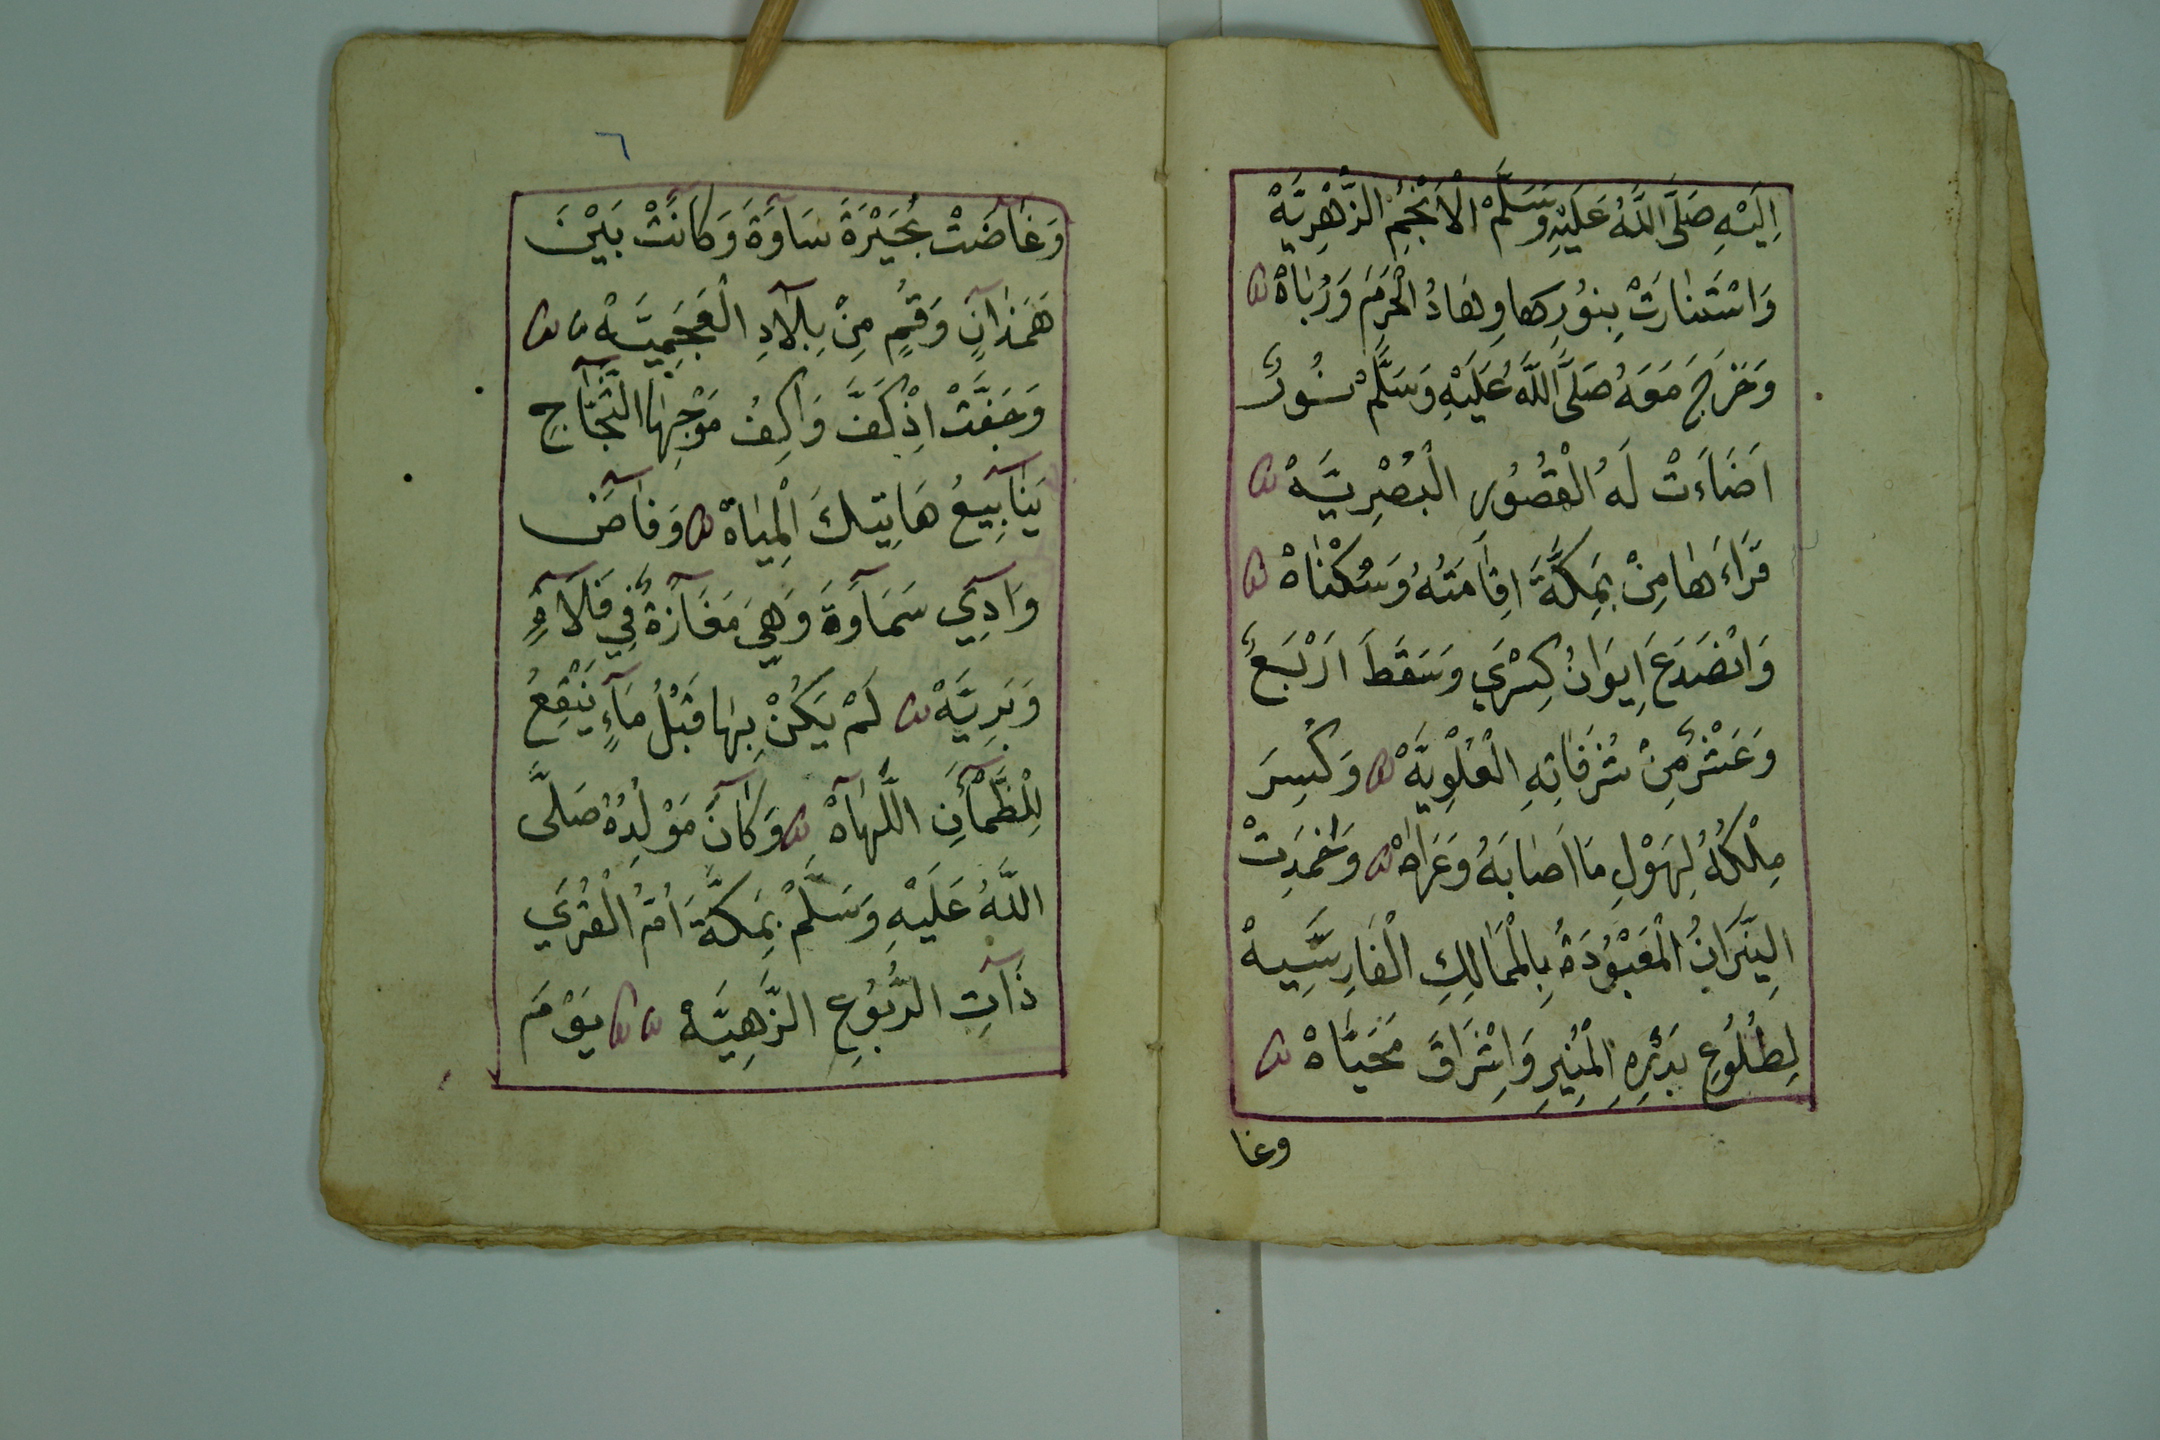 اِلَيْهِ صَلَّى اللَّهُ عَلَيْهِ وَسَلَّمْ الْاَنْجُمُ الزَّهْرِيَّةْ
وَاسْتَنٰارَتْ بِنُوْرِهَا وِهٰادُ الْحَرَمِ وَرُبَاهْ
وَخَرَجَ مَعَهُ صَلَّى اللَّهُ عَلَيْهِ وَسَلَّمْ نُوْرٌ
اَضَاءَتْ لَهُ الْقُصُوْرِ الْبُصْرِيَّةْ
فَرَاءَهٰا مِنْ بِمَكَّةَ اِقَامَتُهُ وَسُكْنٰاهْ
وَانْصَدَعَ اِيوَانُ كِسْرَي وَسَقَطَ اَرْبَعٌ
وَعَشْرٌ مِنْ شُرَفَاتِهِ الْعُلْوِيَّةْ وَكُسِرَ
مِلْكُهُ لِهَوْلِ مَا اَصٰابَهُ وَعَرَاهْ وَخَمَدَتْ
النِّيرَانُ الْمَعْبُوْدَةُ بِالْمَمَالِكِ الْفَارِسِيَّةْ
لِطُلُوْعِ بَدْرِهِ الْمُنِيْرِ وَاِشْرَاقِ مَحَيَّاهْ
وغا
٦
وَغَاضَتْ بُحَيْرَةَ سَاوَةَ وَكَانَتْ بَيْنَ
هَمَذَانٍ وَقُمٍ مِنْ بِلَادِ الْعَجَمِيَّةْ
وَجَفَّتْ اِذْ كَفَّ وَاكِفُ مَوْجِهَا الثَّجَّاجِ
يَنَابِيْعُ هَاتِيْكَ الْمِيَاهْ وَفَاضَ
وَادِي سَمَاوَةَ وَهِيَ مَفَازَةٌ فِي فَلَاةٍ
وَبَرِيَّةْ لَمْ يَكُنْ بِهَا قَبْلُ مَاءٍ يَنْقَعُ
لِلْظَّمْاٰنِ اللَّهَاهْ وَكَانَ مَوْلِدُهُ صَلَّى
اللَّهُ عَلَيْهِ وَسَلَّمْ بِمَكَّةَ اُمُّ الْقُرَي
ذَاتِ الرُّبُوْعِ الزَّهِيَّةْ يَوْمَ